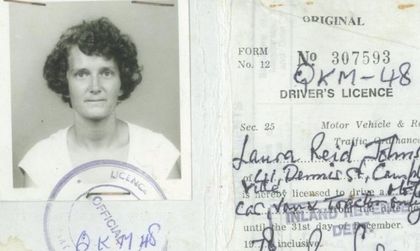 ORIGINAL
FORM
No. 12
No 307593
QKM-48
DRIVER'S LICENCE
Sec. 25 Motor Vehicle & R
Traffic Ordinance
Laura Reid Johns
41, Dennis St, Camp
ville
is hereby licensed to drive a
Car, Van & Tractor
INLAND REVENUE
DEP
until the 31st day of December,
19 inclusive.
LICENCE
OFFICIAL
QKM 48